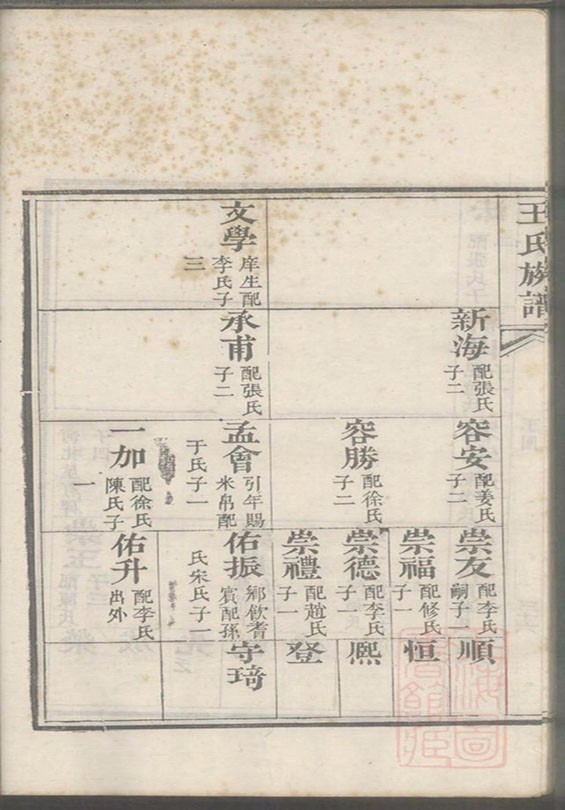 王氏族譜
新海
配張氏
子二
文學
庠生配
李氏子
三
承甫
配張氏
子二
容安
配姜氏
子二
容勝
配徐氏
子二
孟會
引年賜
米帛配
于氏子一
一加
配徐氏
陳氏子
一
崇友
配李氏
嗣子一
崇福
配修氏
子一
崇德
配李氏
子一
崇禮
配趙氏
子一
佑振
鄉飲耆
賓配孫
氏宋氏子二
佑升
配李氏
出外
順
恒
熙
登
守琦